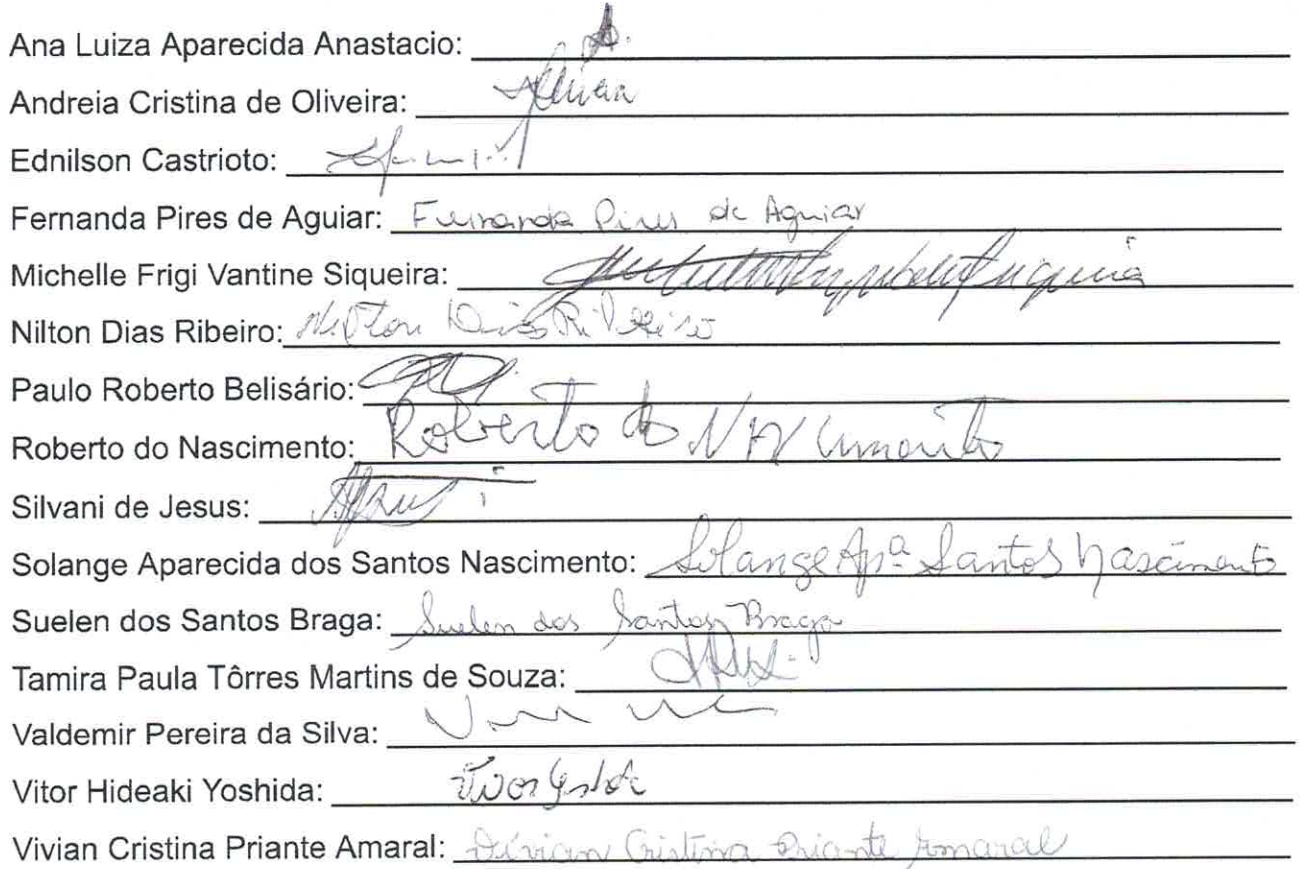 Ana Luiza Aparecida Anastacio:
Andreia Cristina de Oliveira:
Ednilson Castrioto:
Fernanda Pires de Aguiar: Fernanda Pires de Aguiar
Michelle Frigi Vantine Siqueira: Siqueira
Nilton Dias Ribeiro: Nilton Dias Ribeiro
Paulo Roberto Belisário:
Roberto do Nascimento: Roberto do Nascimento
Silvani de Jesus:
Solange Aparecida dos Santos Nascimento: Solange Apª Santos Nascimento
Suelen dos Santos Braga: Suelen dos Santos Braga
Tamira Paula Tôrres Martins de Souza:
Valdemir Pereira da Silva:
Vitor Hideaki Yoshida:
Vivian Cristina Priante Amaral: Vivian Cristina Priante Amaral